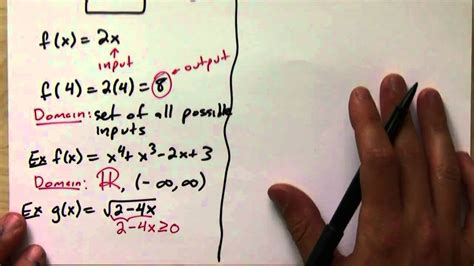 f(x) = 2x
input
f(4) = 2(4) = 8 output
Domain: set of all possible
inputs
Ex f(x) = x⁴ + x³ - 2x + 3
Domain: ℝ, (-∞, ∞)
Ex g(x) = √(2-4x)
2-4x ≥ 0